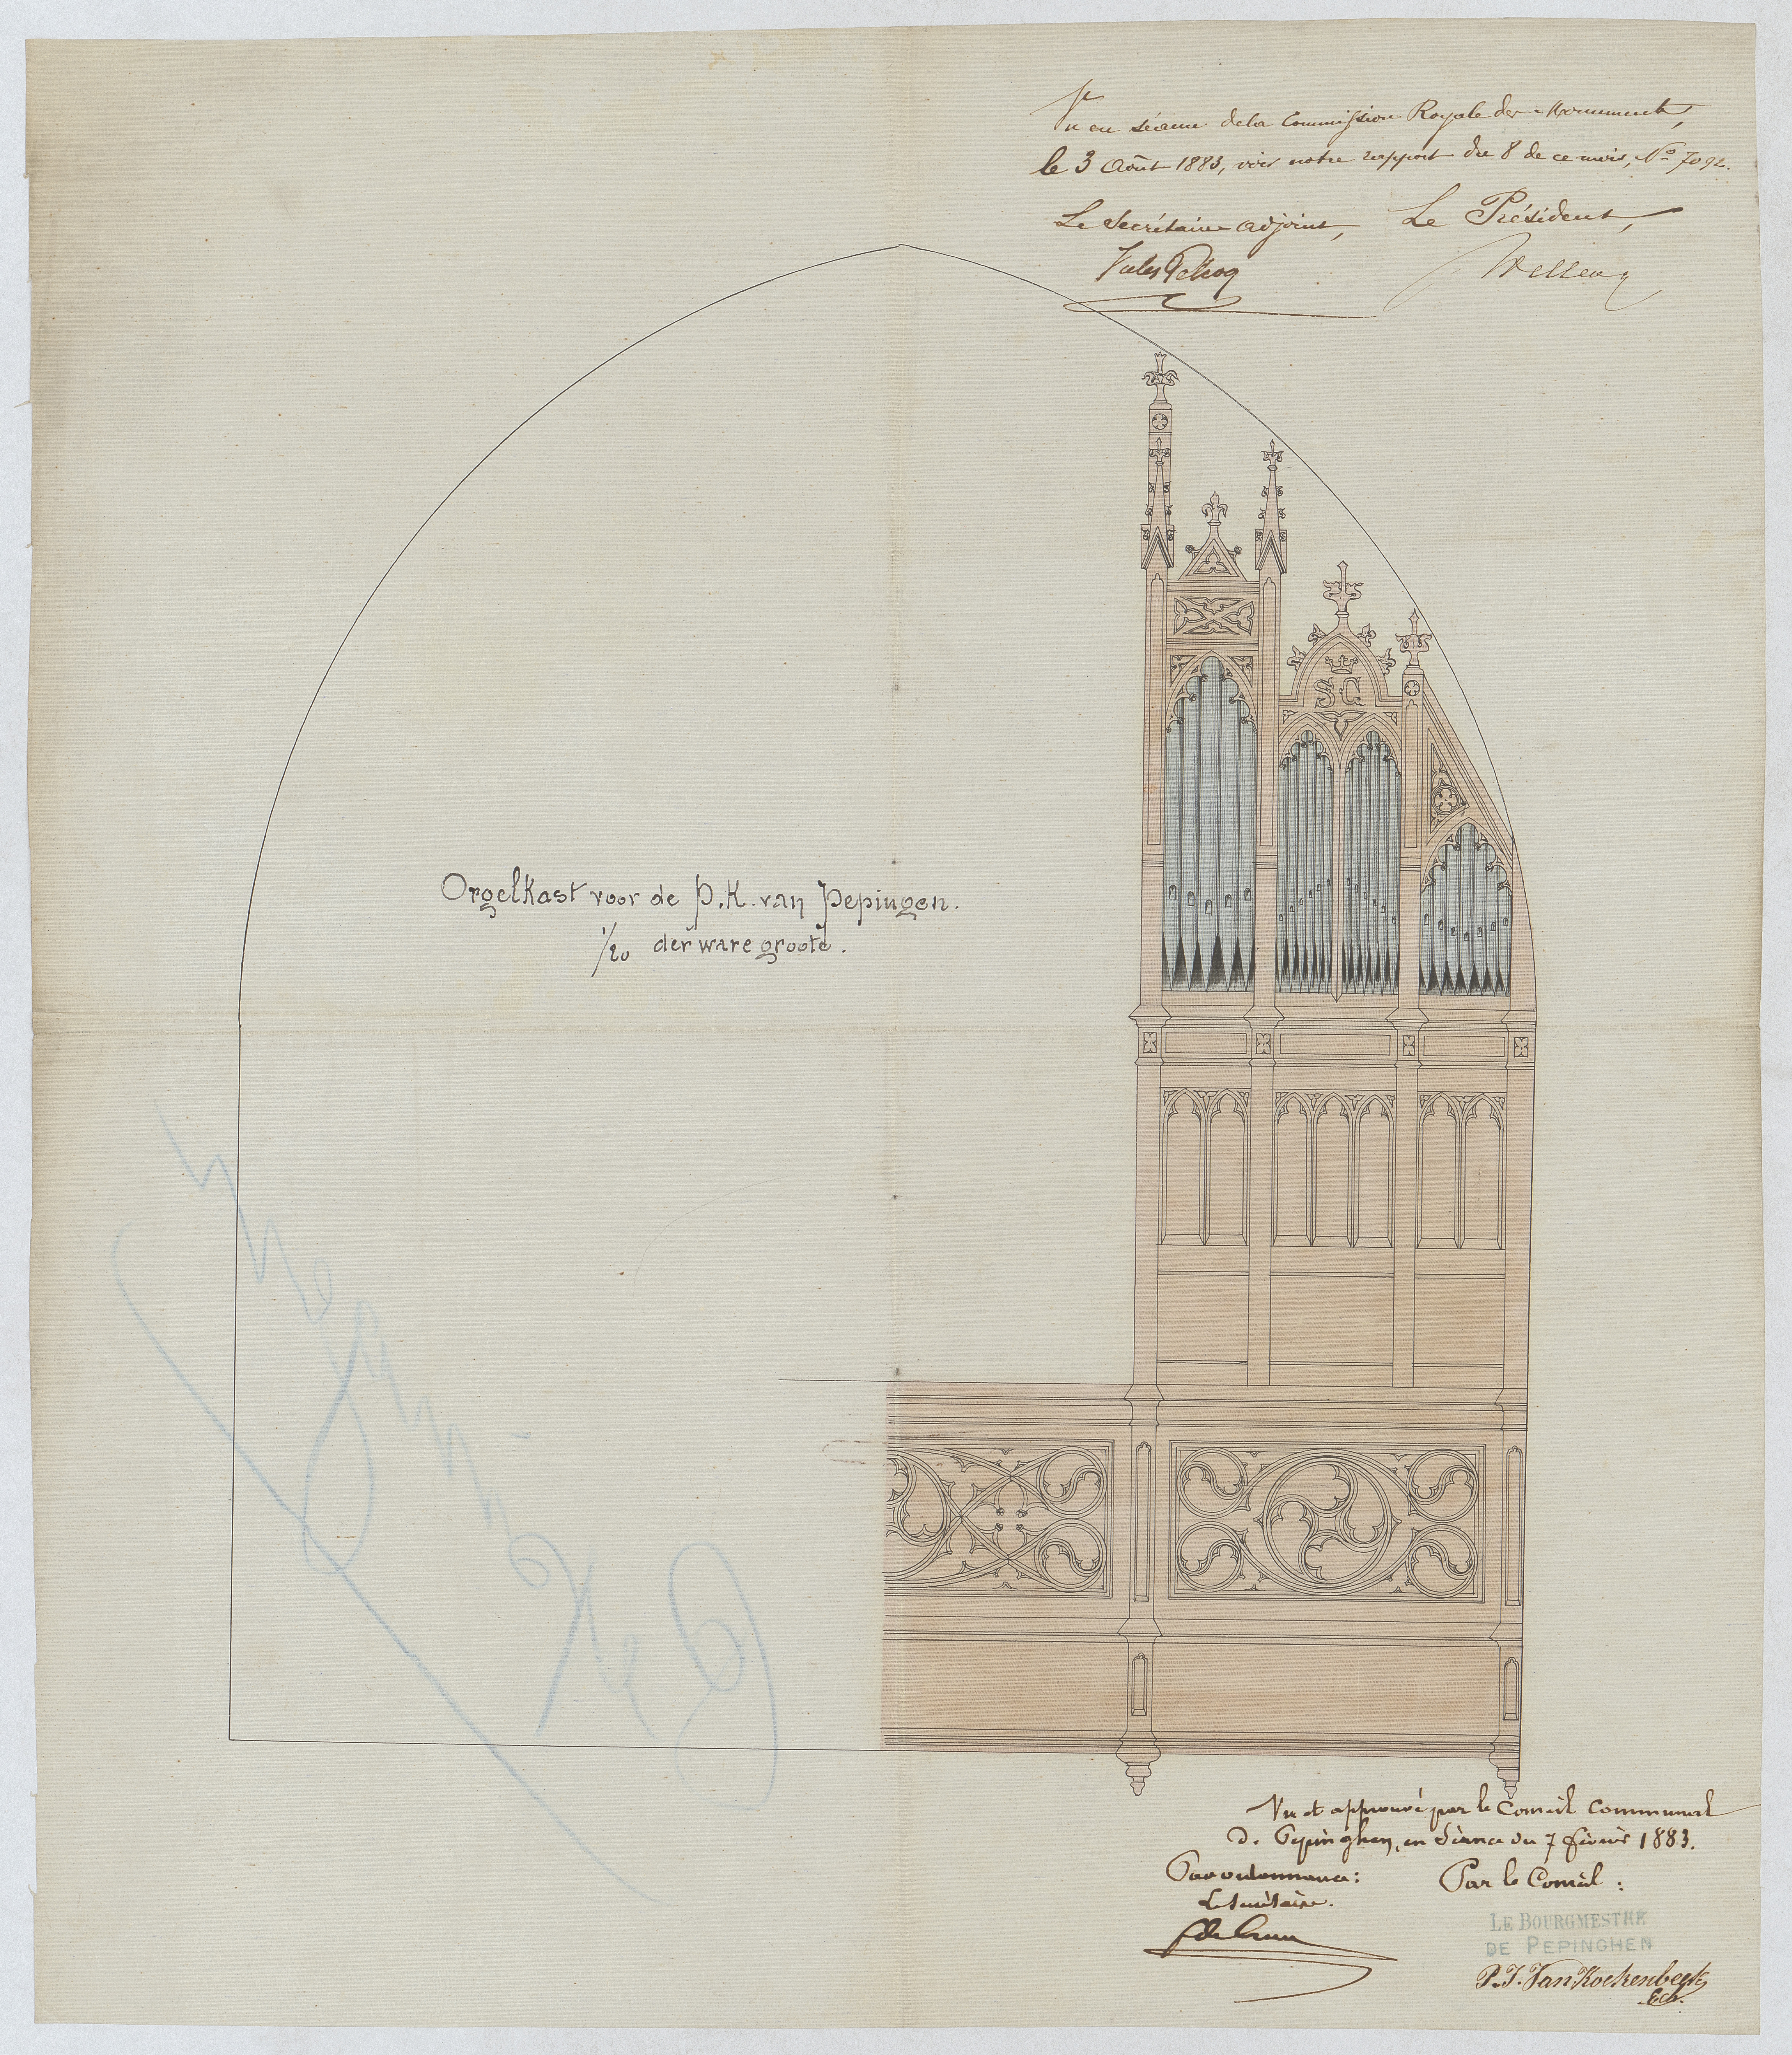 Vu en séance de la Commission Royale des Monuments,
le 3 Août 1883, voir notre rapport du 8 de ce mois, No 7092.
Le Secrétaire adjoint, Le Président,
Wellens
SC
Orgelkast voor de P.K. van Pepingen.
1/20 der ware groote.
Pepinghen
Vu et approuvé par le Conseil communal
de Pepinghen, en séance du 7 février 1883.
Par ordonnance: Par le Conseil:
Le Secrétaire.
LE BOURGMESTRE
DE PEPINGHEN
P.J. Van Kockenbeek
Ech.